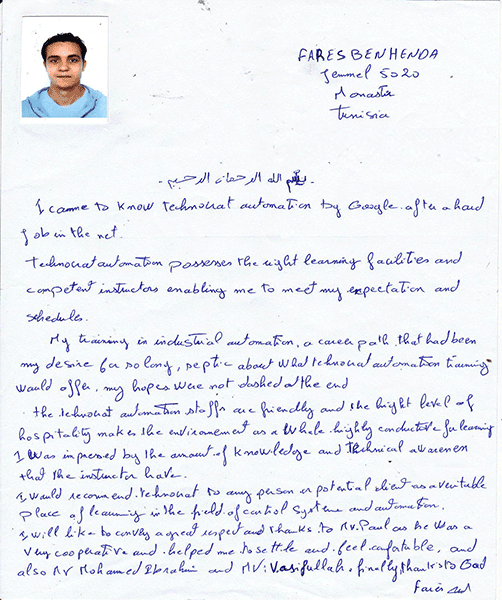 FARES BEN HENDA
Jemmel 5020
Monastir
Tunisia
بسم الله الرحمان الرحيم
I came to know technocrat automation by Google. after a hard
job in the net.
Technocrat automation possesses the right learning facilities and
competent instructors enabling me to meet my expectation and
schedules.
My training in industrial automation, a career path that had been
my desire for so long, septic about what technocrat automation training
would offer, my hopes were not dashed at the end
. the technocrat automation staffs are friendly and the hight level of
hospitality makes the environement as a whole highly conductive for learning
I was impressed by the amount of knowledge and technical awareness
that the instructor have.
I would recommend technocrat to any person or potential client as a veritable
place of learning in the field of control systeme and automation.
I will like to convey a great respect and thanks to Mr. Paul as he was a
very cooperative and helped me to settle and feel confortable, and
also Mr Mohamed Ibrahim and Mr: Vasifullah. finally thanks to God
Fares